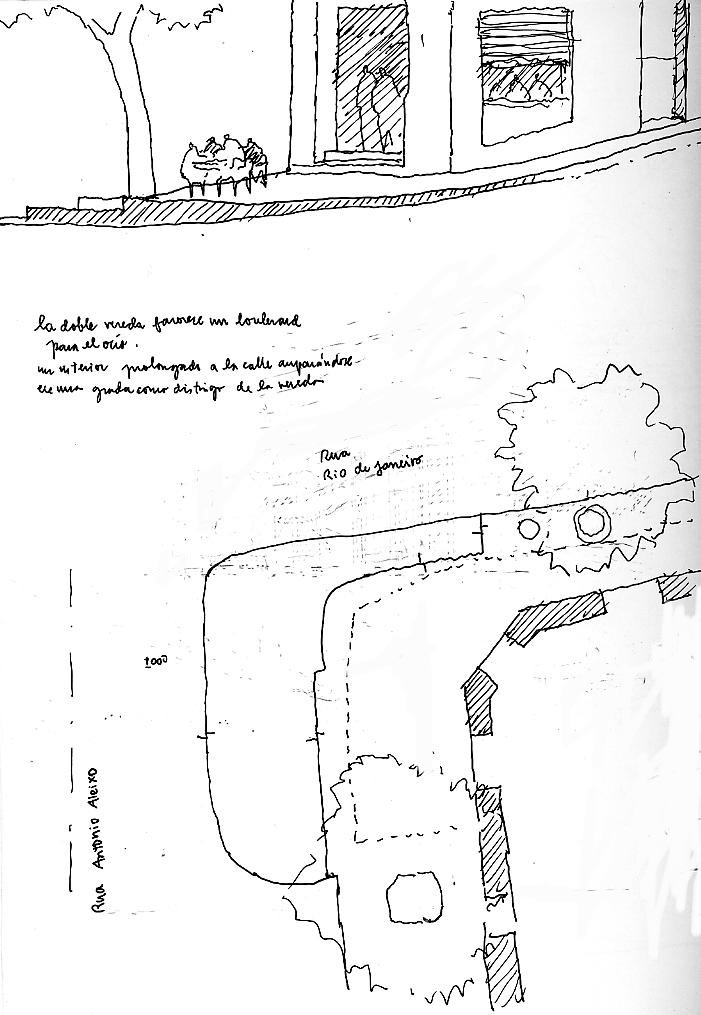 la doble vereda favorece un boulevard
para el ocio.
un interior prolongado a la calle amparándose
en una grada como distingo de la vereda
Rua
Rio de Janeiro
±000
Rua Antonio Aleixo